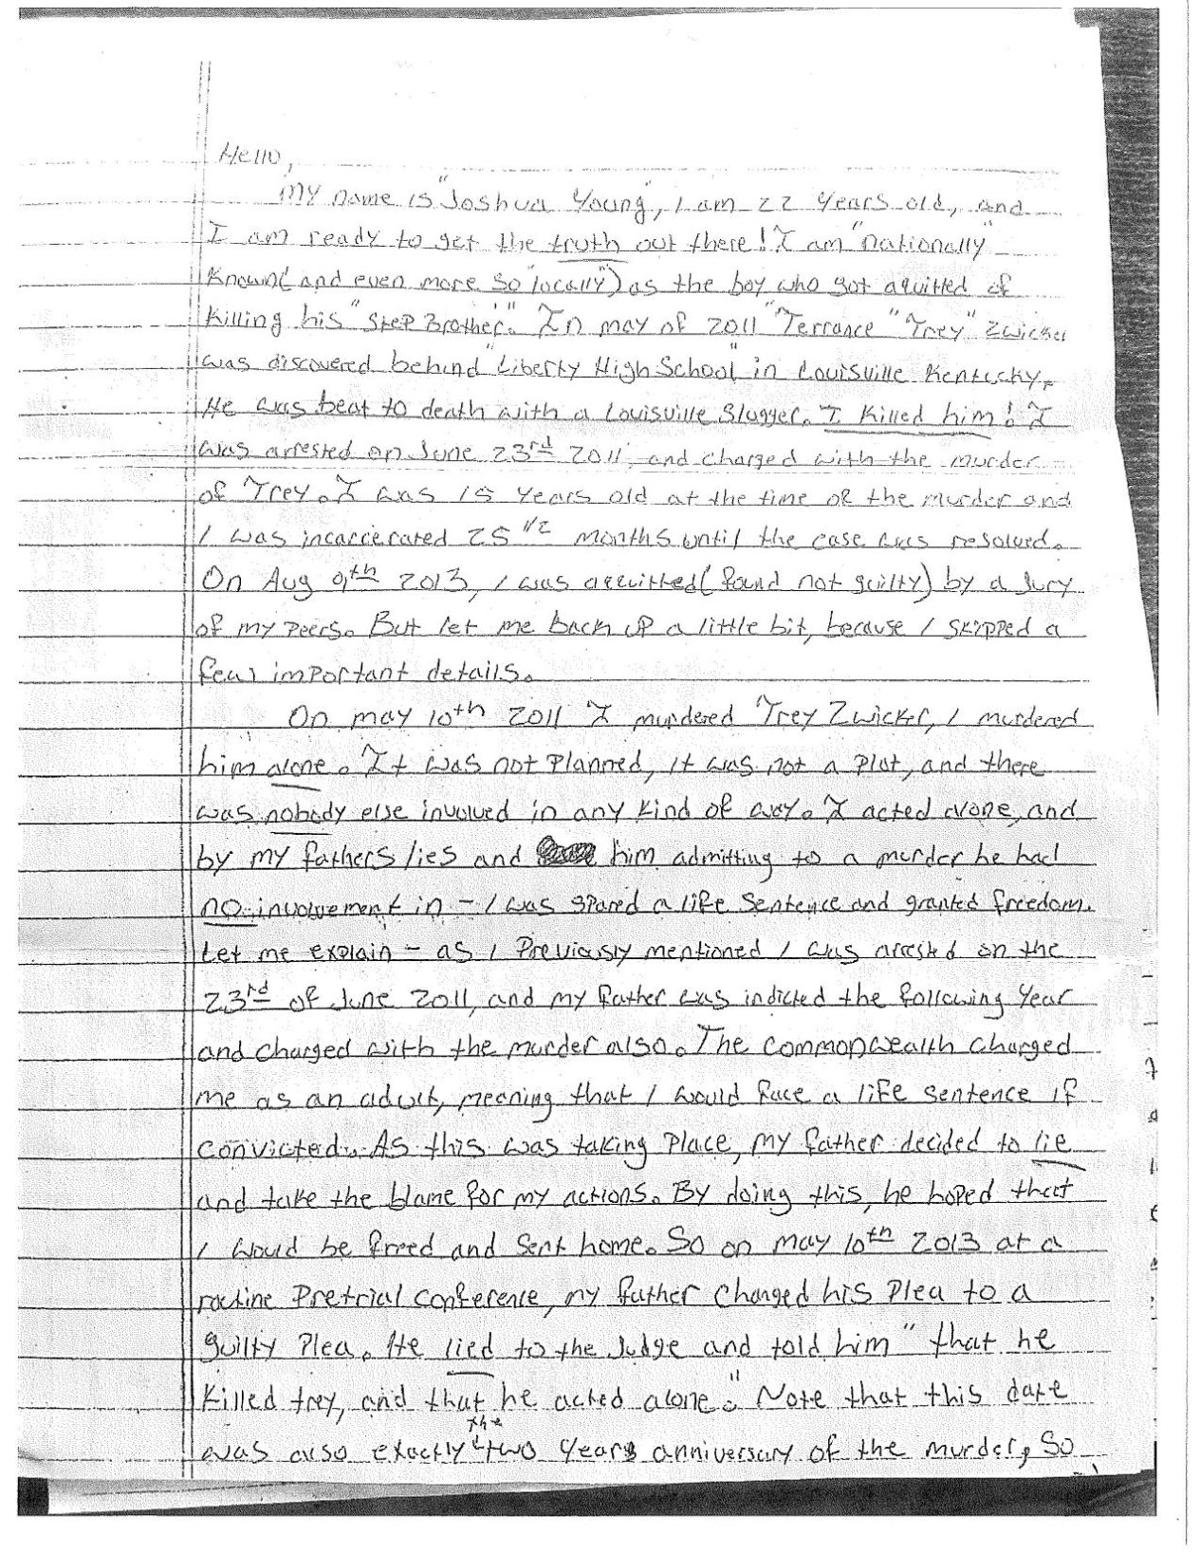 Hello,
My name is "Joshua Young", I am 22 years old, and
I am ready to get the truth out there! I am "nationally"
known (and even more so "locally") as the boy who got aquitted of
killing his "Step Brother". In may of 2011 "Terrance "Trey" Zwicker
was discovered behind "Liberty High School" in Louisville Kentucky.
He was beat to death with a Louisville Slugger. I killed him! I
was arrested on June 23rd 2011, and charged with the murder
of Trey. I was 15 years old at the time of the murder and
I was incarcerated 25 1/2 months until the case was resolved.
On Aug 9th 2013, I was accuitted (found not guilty) by a Jury
of my peers. But let me back up a little bit, because I skipped a
few important details.
On may 10th 2011 I murdered Trey Zwicker, I murdered
him alone. It was not planned, it was not a plot, and there
was nobody else involved in any kind of way. I acted alone, and
by my fathers lies and him admitting to a murder he had
no involvement in - I was spared a life sentence and granted freedom.
Let me explain - as I previously mentioned I was arrested on the
23rd of June 2011, and my father was indicted the following year
and charged with the murder also. The commonwealth charged
me as an adult, meaning that I would face a life sentence if
convicted. As this was taking place, my father decided to lie
and take the blame for my actions. By doing this, he hoped that
I would be freed and sent home. So on may 10th 2013 at a
routine pretrial conference, my father changed his plea to a
guilty plea. He lied to the Judge and told him "that he
killed trey, and that he acted alone". Note that this date
was also exactly the two years anniversary of the murder, So